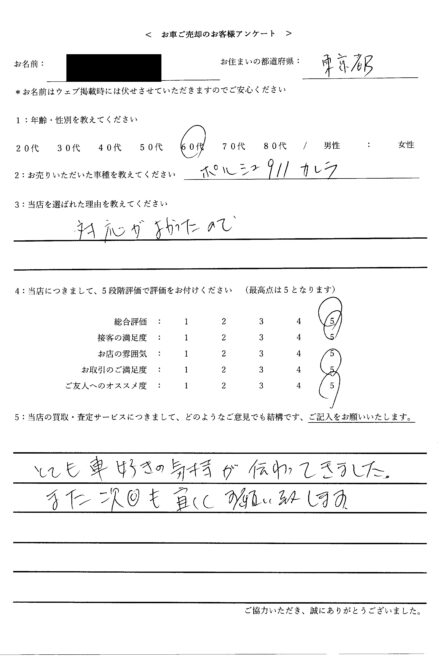 < お車ご売却のお客様アンケート >
お名前： お住まいの都道府県： 東京都
＊お名前はウェブ掲載時には伏せさせていただきますのでご安心ください
1：年齢・性別を教えてください
20代 30代 40代 50代 60代 70代 80代 / 男性 ： 女性
2：お売りいただいた車種を教えてください ポルシェ911 カレラ
3：当店を選ばれた理由を教えてください
対応がよかったので
4：当店につきまして、5段階評価で評価をお付けください （最高点は5となります）
総合評価 ： 1 2 3 4 5
接客の満足度 ： 1 2 3 4 5
お店の雰囲気 ： 1 2 3 4 5
お取引のご満足度 ： 1 2 3 4 5
ご友人へのオススメ度 ： 1 2 3 4 5
5：当店の買取・査定サービスにつきまして、どのようなご意見でも結構です、ご記入をお願いいたします。
とても車好きの気持が伝わってきました。
また次回も宜しくお願い致します
ご協力いただき、誠にありがとうございました。